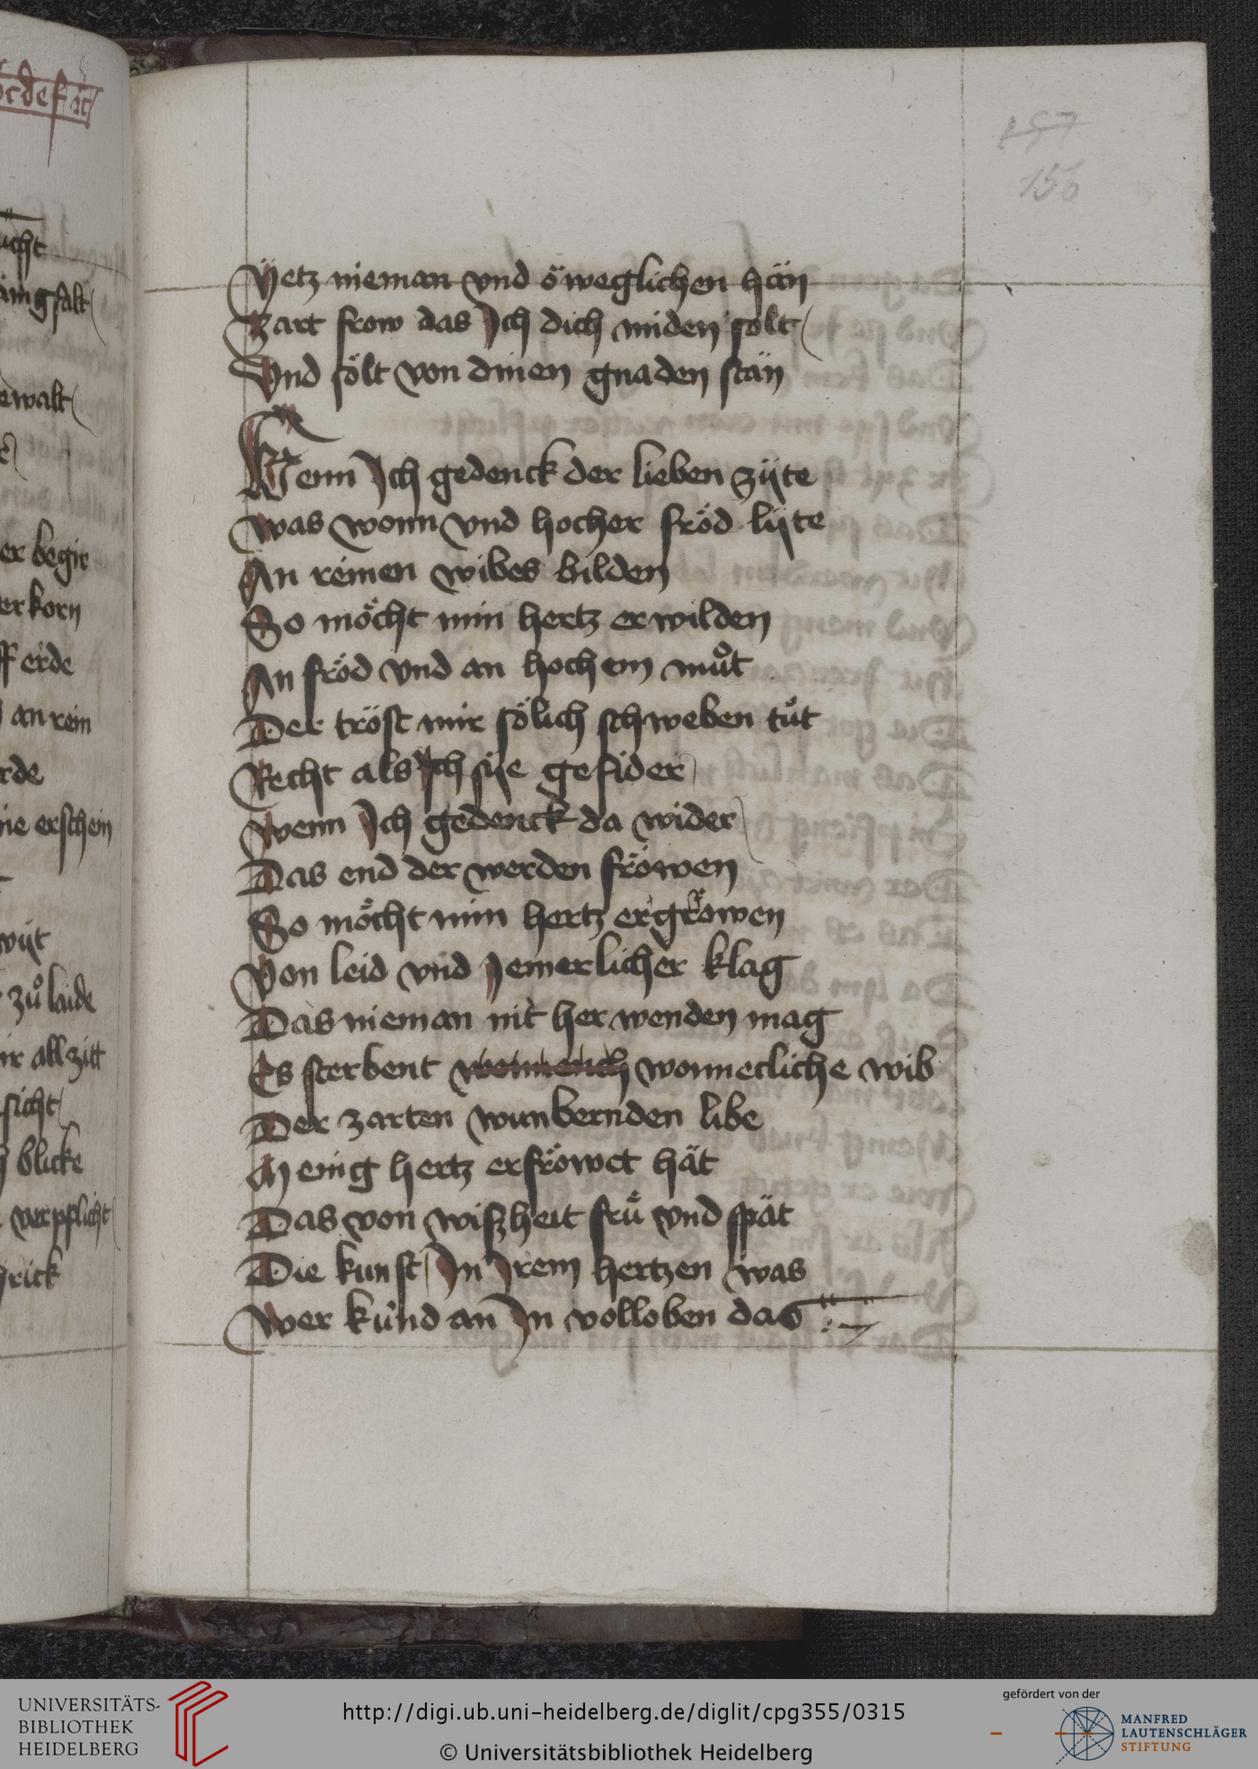 157
156
Yetz nieman vnd öweglichen hän
Zart frow das Ich dich miden solt
Vnd sölt von dinen gnaden stän
Wenn Ich gedenck der lieben züte
was wonn vnd hocher fröd lyte
An reinen wibes bilden
So möcht min hertz erwilden
An fröd vnd an hochem muͦt
Der tröst mir sölich schweben tuͦt
Recht als Ich sÿe gefider
Wenn Ich gedenck da wider
Das end der werden fröwen
So möcht min hertz ergröwen
Von leid vnd Jemerlicher klag
Das nieman nit her wenden mag
Es sterbent wonnecliche wib
Der zarten wunbernden libe
Menig hertz erfröwet hät
Das von wiszheit fruͤ vnd spät
Die kunst In Irem hertzen was
Wer künd an In volloben das
ucht
ewalt
er begir
erkorn
ff erde
an rein
rde
nie erschein
wyt
zuͦ laide
ir allzitt
sicht
blicke
verpflicht
rick
UNIVERSITÄTS-
BIBLIOTHEK
HEIDELBERG
http://digi.ub.uni-heidelberg.de/diglit/cpg355/0315
© Universitätsbibliothek Heidelberg
gefördert von der
MANFRED
LAUTENSCHLÄGER
STIFTUNG